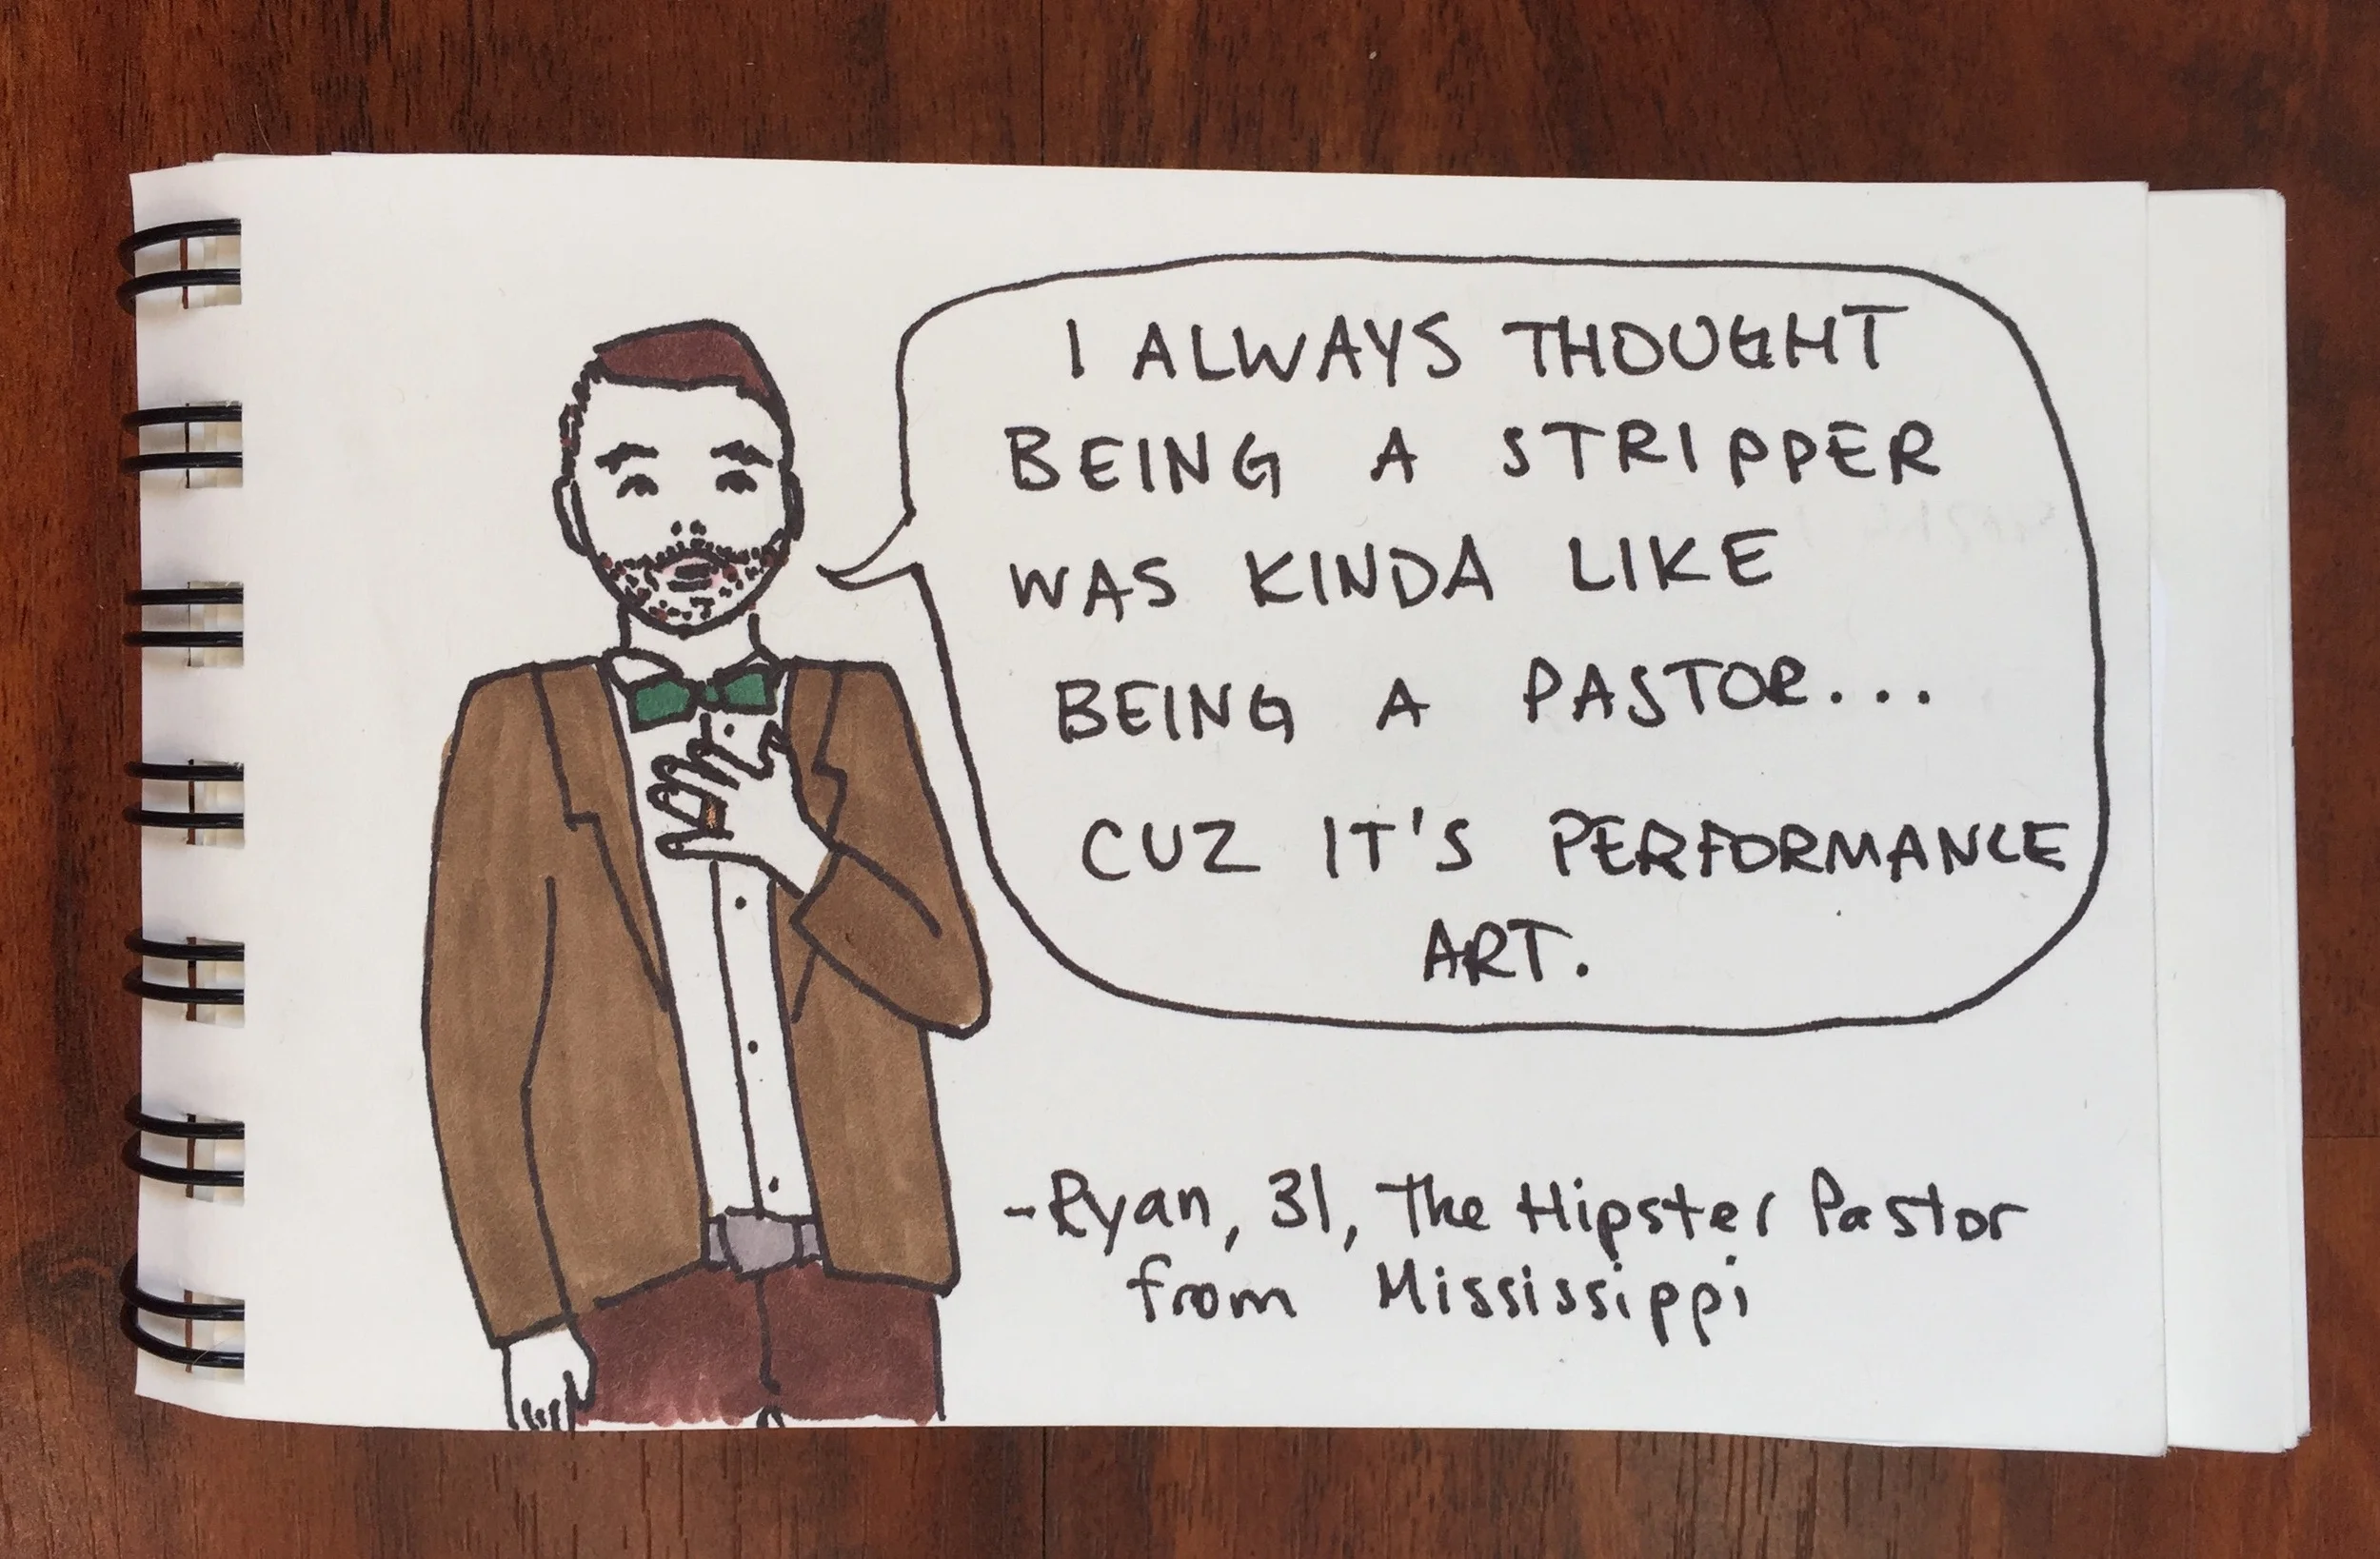 I ALWAYS THOUGHT
BEING A STRIPPER
WAS KINDA LIKE
BEING A PASTOR...
CUZ IT'S PERFORMANCE
ART.
-Ryan, 31, The Hipster Pastor
from Mississippi